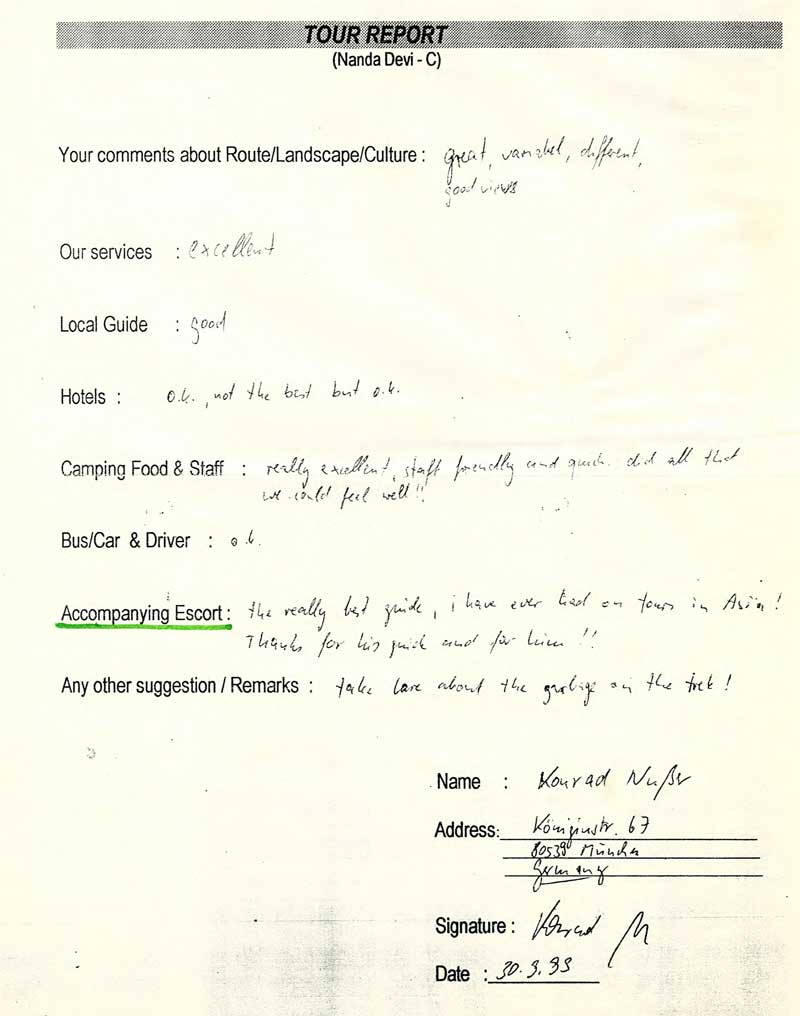 TOUR REPORT
(Nanda Devi - C)
Your comments about Route/Landscape/Culture : great, variabel, different,
good views
Our services : excellent
Local Guide : good
Hotels : o.k., not the best but o.k.
Camping Food & Staff : really excellent, staff friendly and quick. did all that
we could feel well!!
Bus/Car & Driver : o.k.
Accompanying Escort : the really best guide, i have ever had on tours in Asia!
Thanks for his guide and for him!!
Any other suggestion / Remarks : take care about the garbage on the trek!
Name : Konrad Nußer
Address: Königinstr. 67
80539 München
Germany
Signature : Konrad
Date : 30.9.99